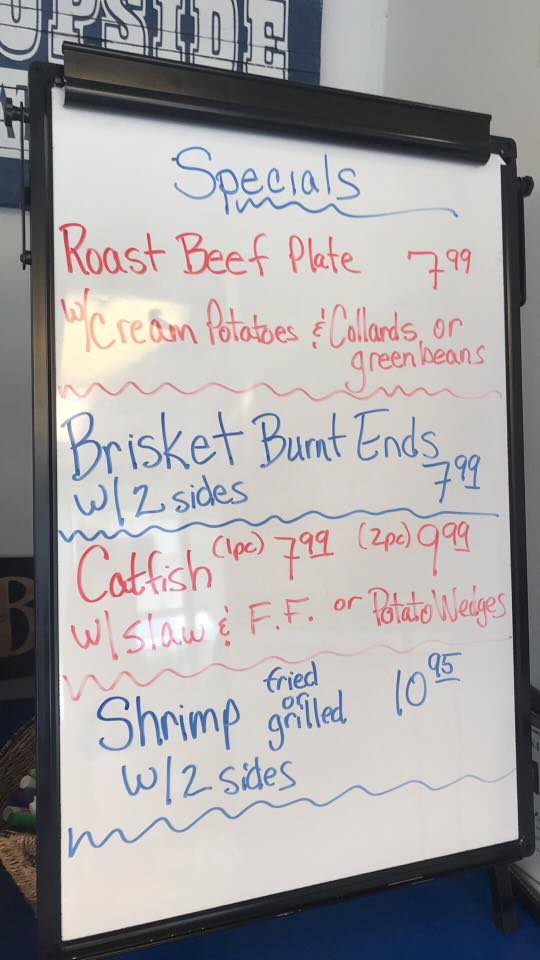 UPSIDE
Specials
Roast Beef Plate 7.99
w/Cream Potatoes & Collards or
green beans
Brisket Burnt Ends
w/2 sides 7.99
Catfish (1pc) 7.99 (2pc) 9.99
w/slaw & F.F. or Potato Wedges
Shrimp fried or grilled 10.95
w/2 sides
B